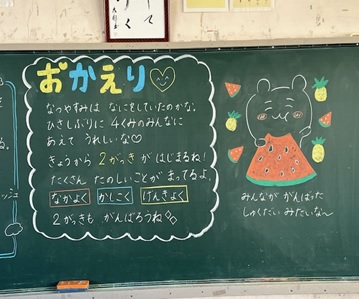 おかえり
なつやすみは なにをしていたのかな。
ひさしぶりに 4くみのみんなに
あえて うれしいな♡
きょうから 2がっき がはじまるね!
たくさん たのしいことが まってるよ。
なかよく かしこく げんきよく
2がっきも がんばろうね
みんなが がんばった
しゅくだい みたいな〜